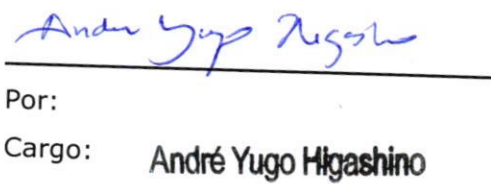 Andre Yugo Higashino
Por:
Cargo:
André Yugo Higashino